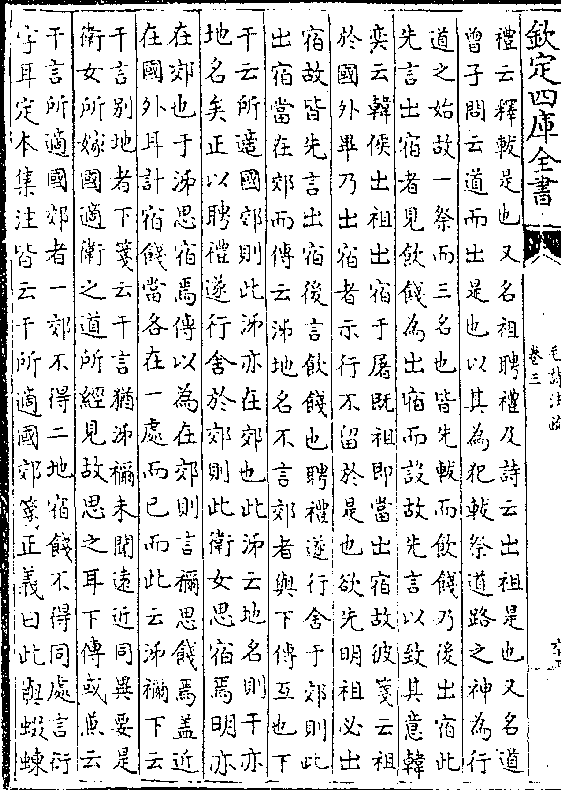 欽定四庫全書
毛詩注疏
卷三
禮云釋軷是也又名祖聘禮及詩云出祖是也又名道
曾子問云道而出是也以其為犯軷祭道路之神為行
道之始故一祭而三名也皆先軷而飲餞乃後出宿此
先言出宿者見飲餞為出宿而設故先言以致其意韓
奕云韓侯出祖出宿于屠既祖即當出宿故彼箋云祖
於國外畢乃出宿者示行不留於是也欲先明祖必出
宿故皆先言出宿後言飲餞也聘禮遂行舍于郊則此
出宿當在郊而傳云泲地名不言郊者與下傳互也下
干云所適國郊則此泲亦在郊也此泲云地名則干亦
地名矣正以聘禮遂行舍於郊則此衛女思宿焉明亦
在郊也于泲思宿焉傳以為在郊則言禰思餞焉蓋近
在國外耳計宿餞當各在一處而已而此云泲禰下云
干言別地者下箋云干言猶泲禰未聞遠近同異要是
衛女所嫁國適衛之道所經見故思之耳下傳或兼云
干言所適國郊者一郊不得二地宿餞不得同處言衍
字耳定本集注皆云干所適國郊箋正義曰此與蝃蝀